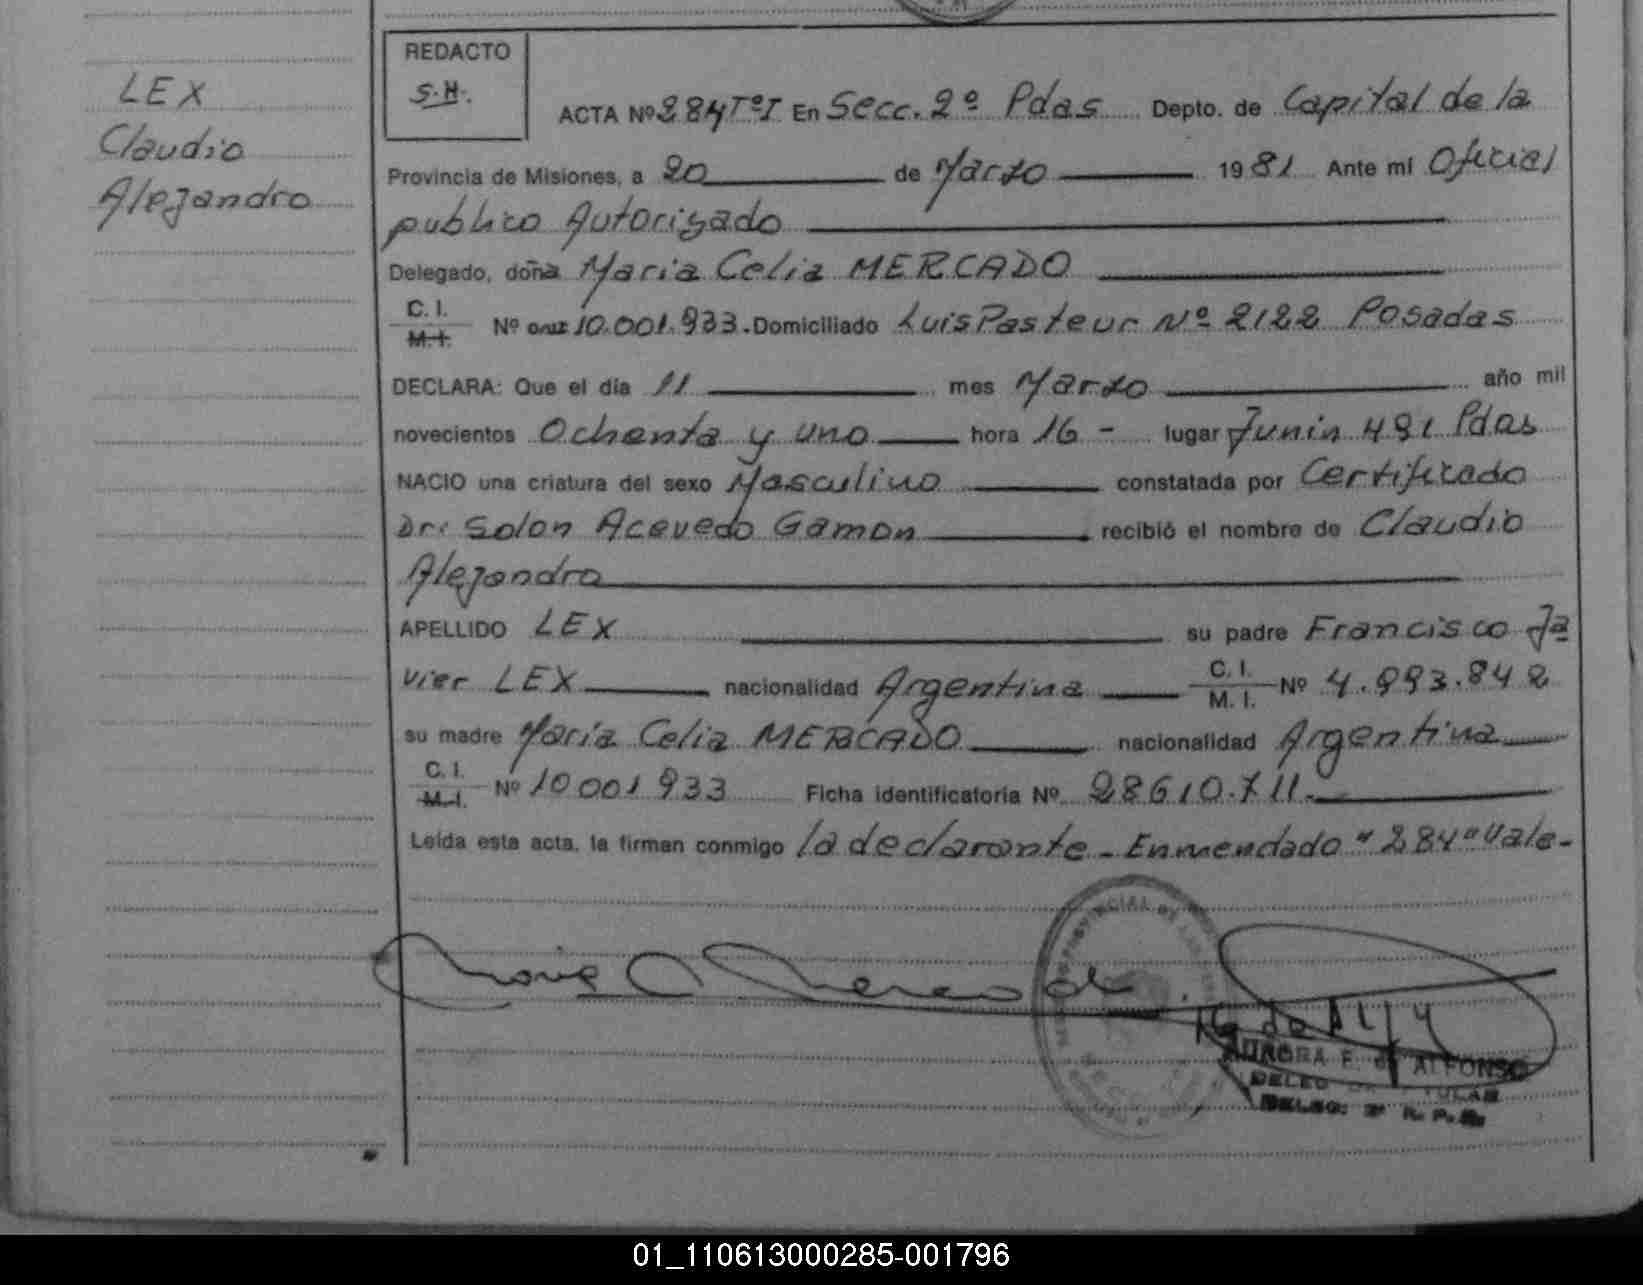 LEX
Claudio
Alejandro
REDACTO
S.H.
ACTA Nº 284 TºI En Secc. 2º Pdas Depto. de Capital de la
Provincia de Misiones, a 20 de Marzo 1981 Ante mi Oficial
publico Autorizado
Delegado, doña Maria Celia MERCADO
C. I.
M. I. Nº 10.001.933. Domiciliado Luis Pasteur Nº 2122 Posadas
DECLARA: Que el día 11 mes Marzo año mil
novecientos Ochenta y uno hora 16 - lugar Junin 491 Pdas
NACIO una criatura del sexo Masculino constatada por Certificado
Dr: Solon Acevedo Gamon recibió el nombre de Claudio
Alejandro
APELLIDO LEX su padre Francisco Ja
vier LEX nacionalidad Argentina C. I. M. I. Nº 4.993.842
su madre Maria Celia MERCADO nacionalidad Argentina
C. I. M. I. Nº 10 001 933 Ficha identificatoria Nº 28610.711.
Leída esta acta, la firman conmigo la declarante - Enmendado "284" Vale-
AURORA E. de ALFONSO
01_110613000285-001796